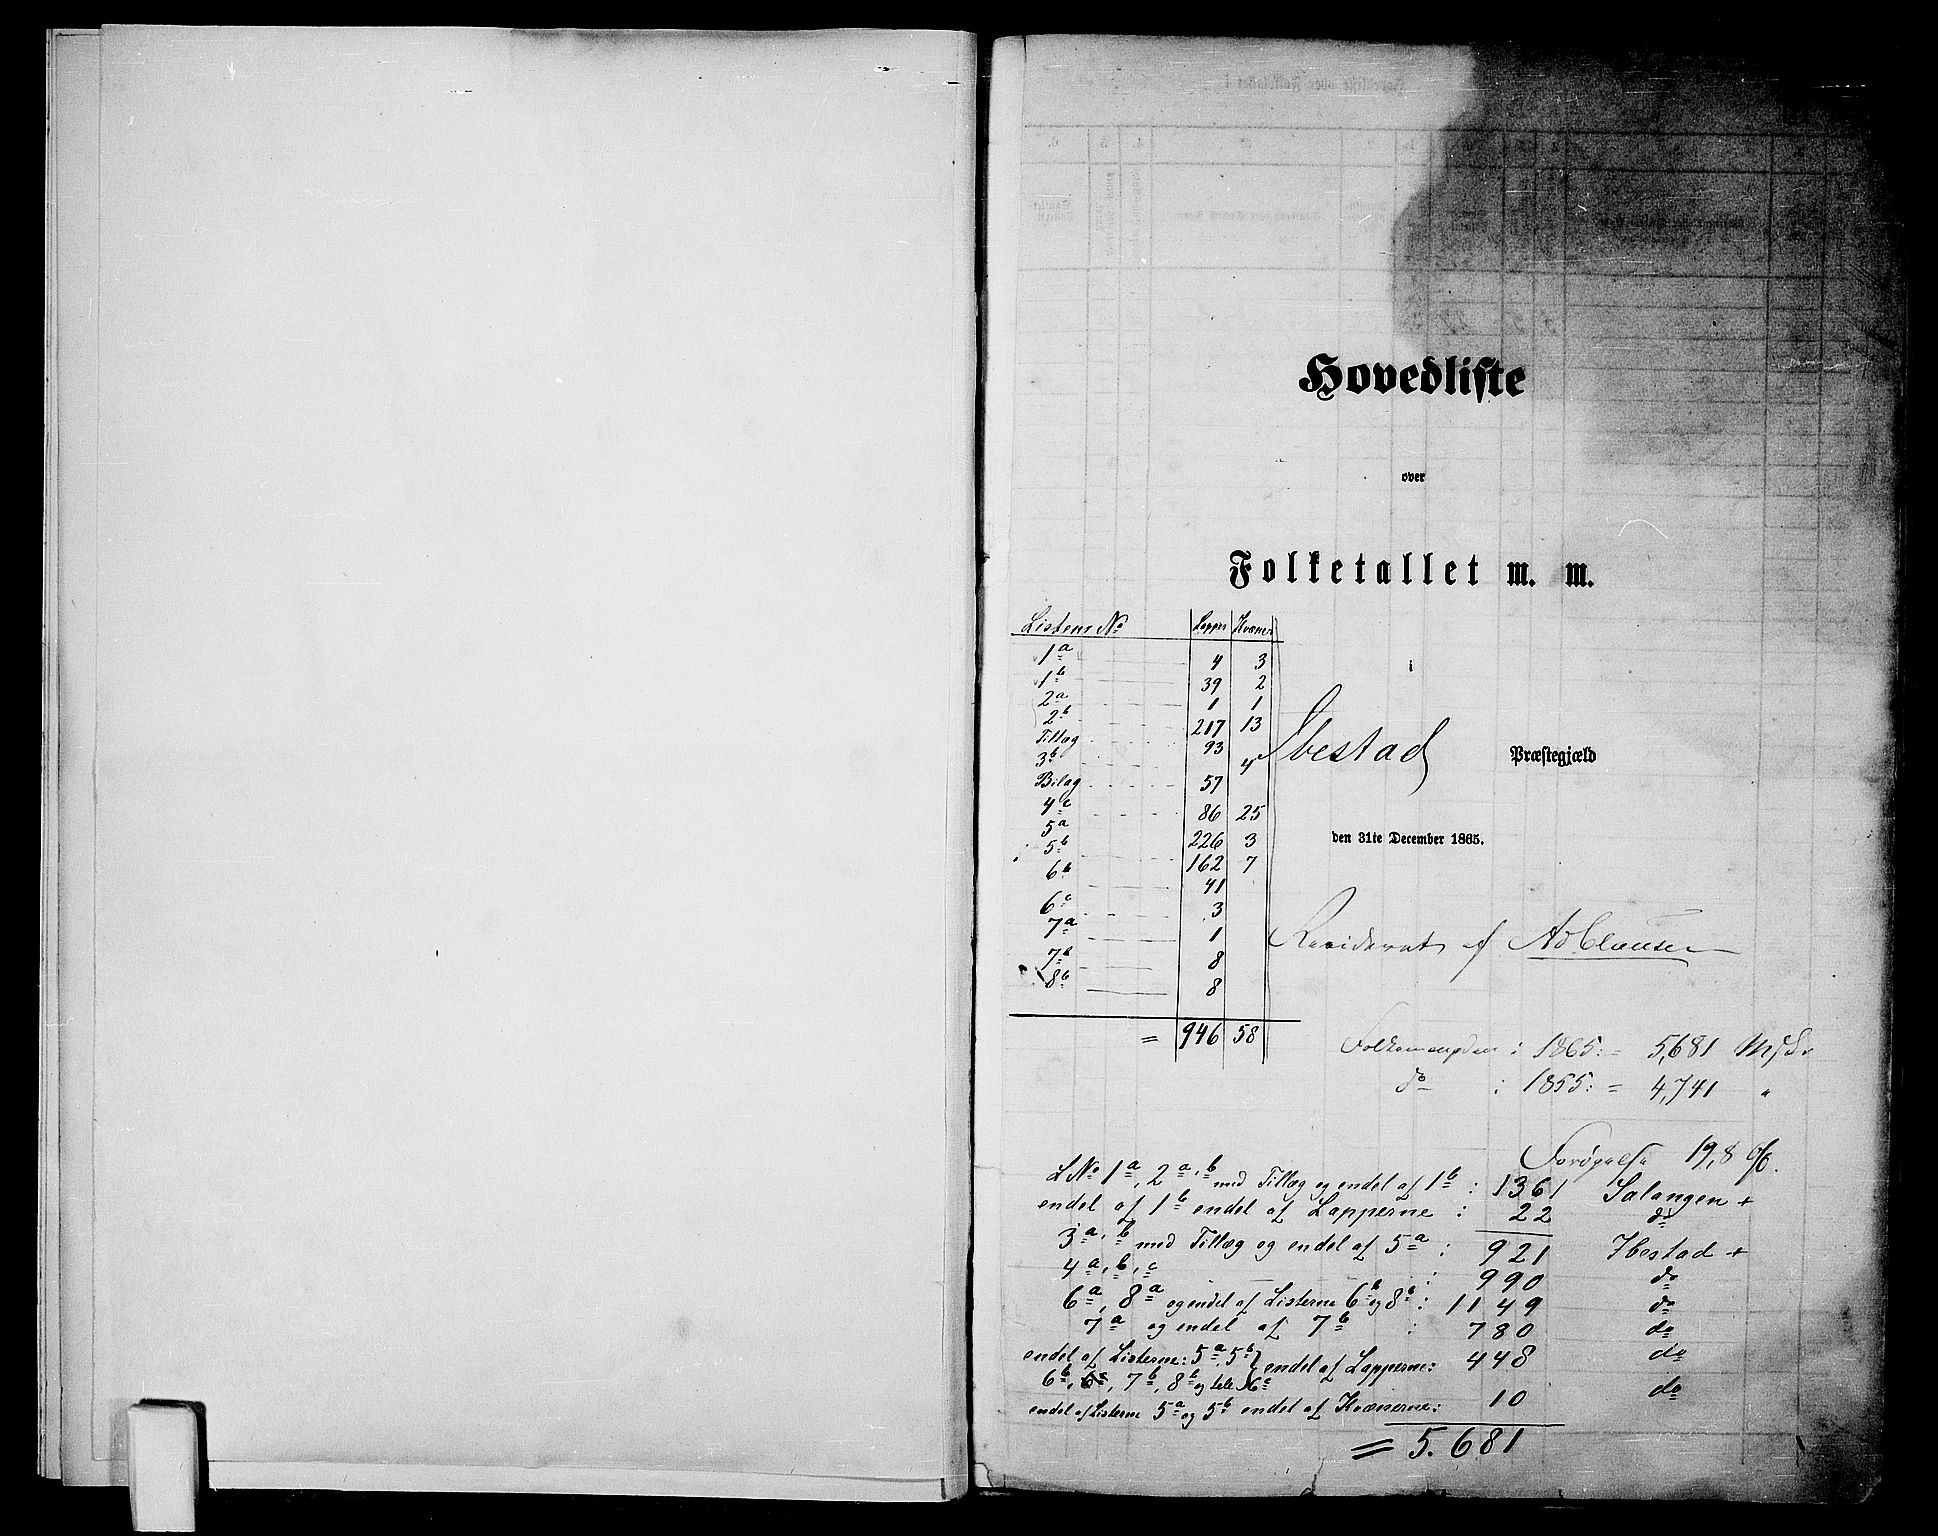 Hovedliste
over
Folketallet m. m.
i
Ibestad Præstegjæld
den 31te December 1865.
Revideret af A Clausen
Listens No Lapper Kvæner
1a 4 3
1b 39 2
2a 1 1
2b 217 13
Tillæg 93
3b 4
Bilag 57
4c 86 25
5a 226 3
5b 162 7
6b 41
6c 3
7a 1
7b 8
8b 8
= 946 58
Folkemængden : 1865: = 5,681 Msk.
do : 1855: = 4,741 "
Forøgelse 19,8 %.
L No 1a, 2a,b med Tillæg og endel af 1b : 1361 Salangen +
endel af 1b endel af Lapperne : 22 do
3a,b med Tillæg og endel af 5a : 921 Ibestad +
4a,b,c : 990 do
6a, 8a og endel af Listerne 6b og 8b : 1149 do
7a og endel af 7b : 780 do
endel af Listerne: 5a, 5b endel af Lapperne: 448 do
6b, 6c, 7b, 8b og hele 6c
endel af Listerne 5a og 5b endel af Kvænerne: 10 do
= 5.681